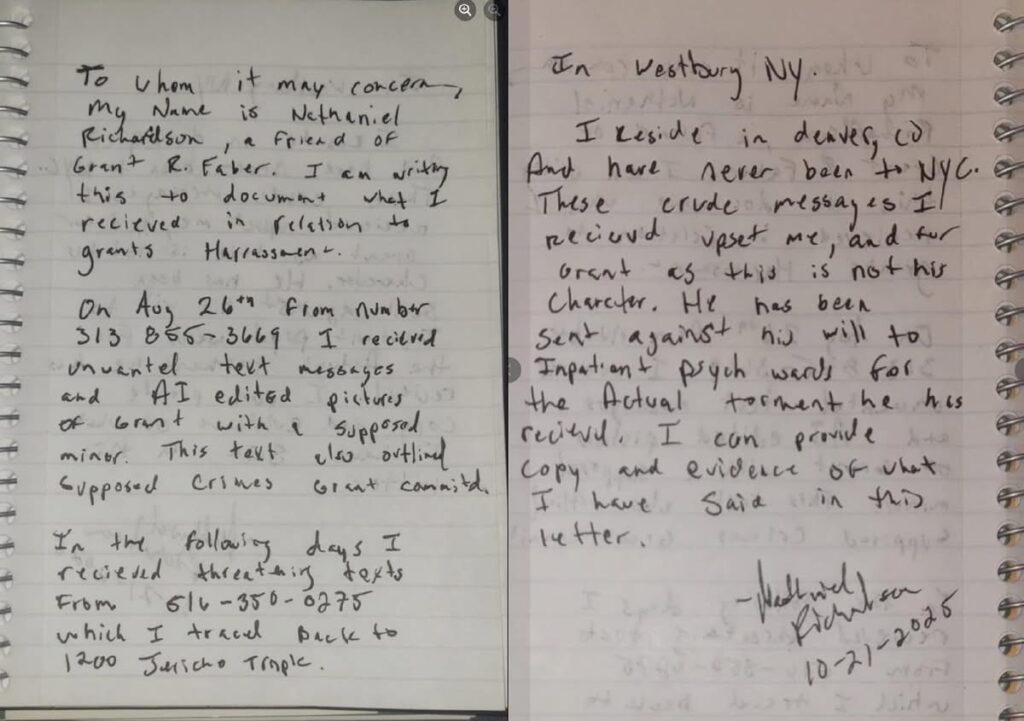 To whom it may concern,
My Name is Nathaniel
Richardson, a friend of
Grant R. Faber. I am writing
this to document what I
recieved in relation to
grants Harrassment.
On Aug 26th from number
313 855-3669 I recieved
unwanted text messages
and AI edited pictures
of Grant with a supposed
minor. This text also outlined
supposed crimes Grant commited.
In the following days I
recieved threatning texts
From 516-350-0275
which I traced back to
1200 Jericho Trnpk.
In Westbury NY.
I reside in denver, CO
And have never been to NYC.
These crude messages I
recieved upset me, and for
Grant as this is not his
Charcter. He has been
Sent against his will to
Inpatient psych wards for
the Actual torment he has
recieved. I can provide
Copy and evidence of what
I have Said in this
letter.
-Nathaniel
Richardson
10-21-2025